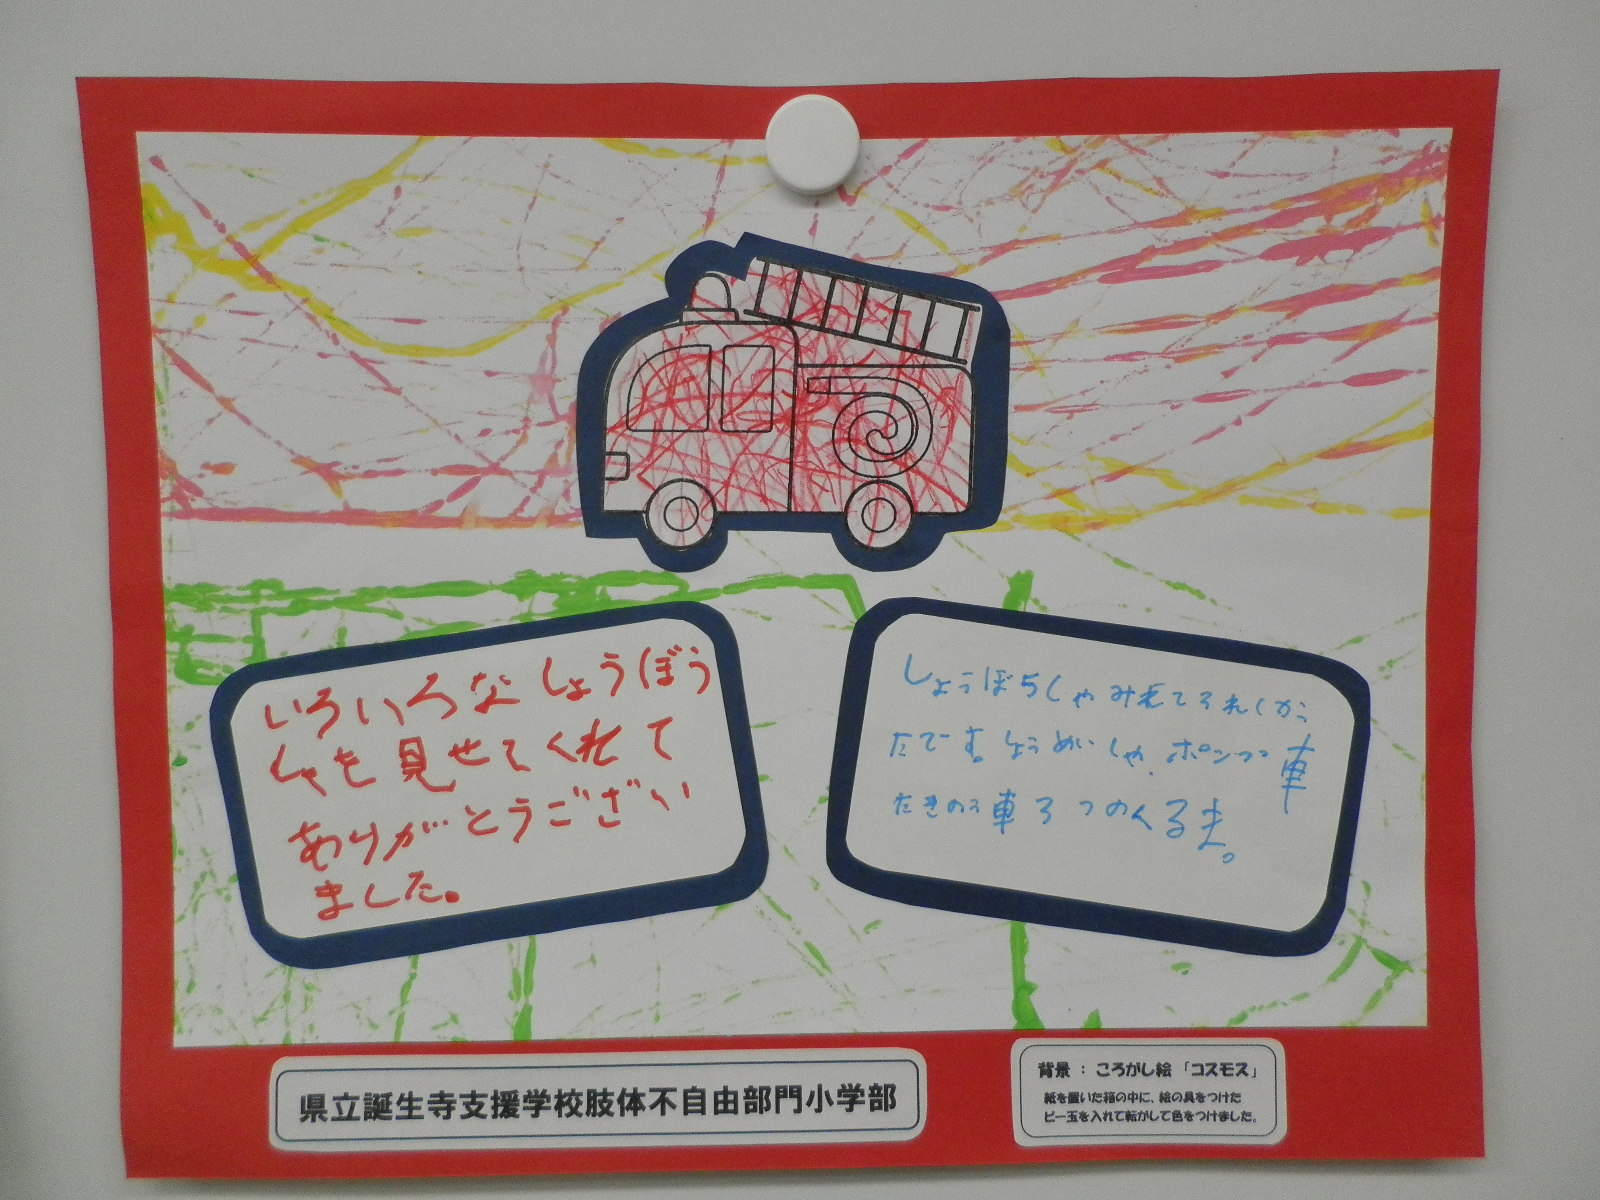 いろいろな しょうぼう
しゃを 見せてくれて
ありがとうござい
ました。
しょうぼうしゃみれてうれしかっ
たです。しょうめいしゃ ポンプ車
たきのう車 3つのくるま。
県立誕生寺支援学校肢体不自由部門小学部
背景：ころがし絵「コスモス」
紙を置いた箱の中に、絵の具をつけた
ビー玉を入れて転がして色をつけました。